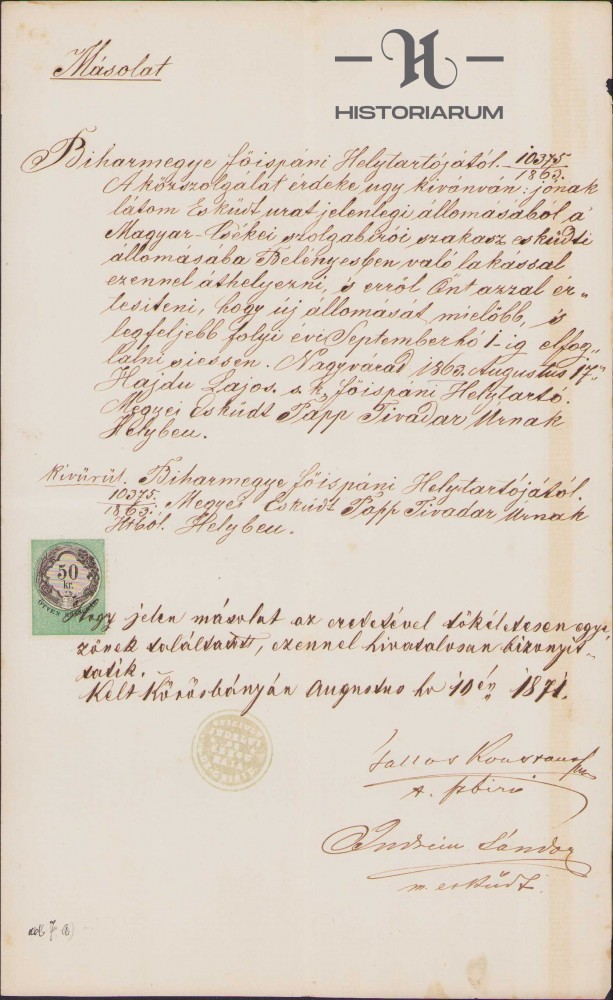 H
HISTORIARUM
Másolat
Biharmegye főispáni Helytartójától. 10375/1863.
A közszolgálat érdeke ugy kivánván: jónak
látom Esküdt urat jelenlegi állomásából á
Magyar- szolgabirói szakasz esküdti
állomásába Belényesben való lakással
ezennel áthelyezni, is erről Önt azzal ér„
tesiteni, hogy új állomását mielőbb, is
legfeljebb folyi évi September hó 1-ig elfog„
lalni siessen. Nagyvárad 1863. Augustus 17„
Hajdu Lajos. s. k. főispáni Helytartó.
Megyei Esküdt Papp Tivadar Urnak
Helyben.
Kivürül. Biharmegye főispáni Helytartójától.
10375/1863. Megyei Esküdt Papp Tivadar Urnak
Htból. Helyben.
50
kr.
ÖTVEN
Hogy jelen másolat az eredetével tökéletesen egye
zőnek találtatott, ezennel hivatalosan bizonyit„
tatik.
Kelt Körösbányán Augustus hó 10 én 1871.
Sándor
m. esküdt.